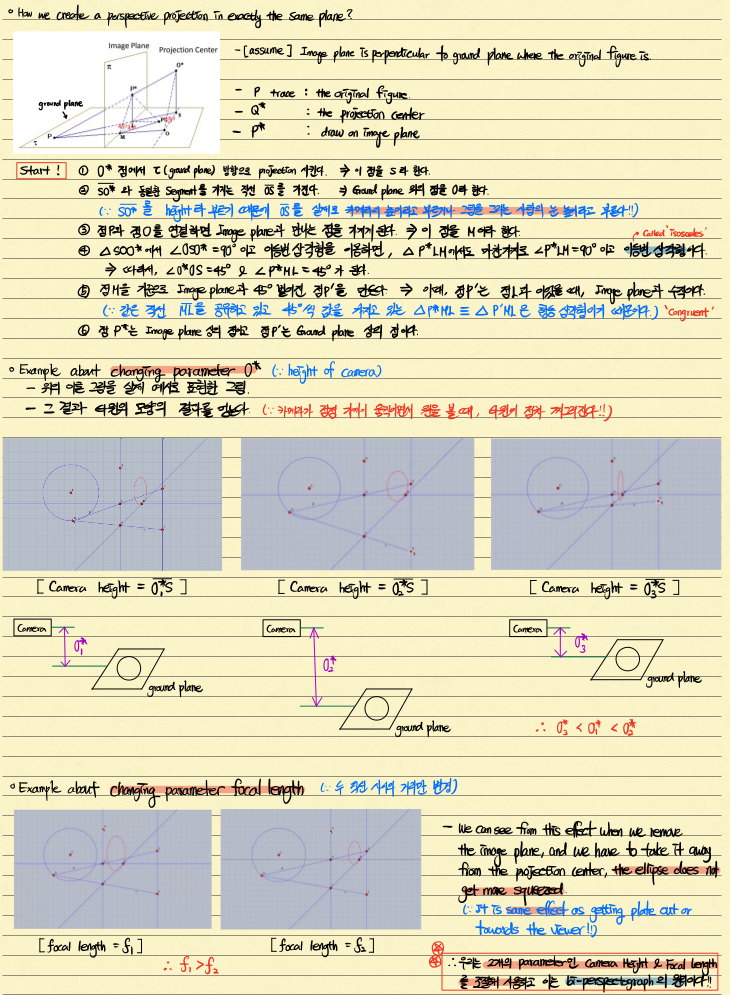 ○ How we create a perspective projection in exactly the same plane?
Image Plane
Projection Center
π
O*
P*
ground plane
S
P
M
O
τ
- [assume] Image plane is perpendicular to ground plane where the original figure is.
- P trace : the original figure.
- O* : the projection center
- P* : draw on image plane
Start !
① O* 점에서 τ(ground plane) 방향으로 projection 시킨다. ⇒ 이 점을 S라 한다.
② SO* 와 동일한 Segment를 가지는 직선 OS를 가진다. ⇒ Ground plane 위의 점을 O라 한다.
(∵ SO* 를 height라 부르기 때문에 OS를 실제로 카메라의 높이라고 부르거나 그림을 그리는 사람의 눈 높이라고 부른다!!)
③ 점P와 점O를 연결하면 Image plane과 만나는 점을 가지게 된다. ⇒ 이 점을 M이라 한다.
Called 'Isosceles'
④ △SOO* 에서 ∠OSO* = 90° 이고 이등변 삼각형을 이용하면, △P*LM에서도 마찬가지로 ∠P*LM = 90° 이고 이등변 삼각형이다.
⇒ 따라서, ∠O*OS = 45° & ∠P*ML = 45° 가 된다.
⑤ 점M을 기준으로 Image plane과 45° 벌어진 점P'을 만든다. ⇒ 이때, 점P'는 점L과 이었을 때, Image plane과 수직이다.
(∵ 같은 직선 ML을 공유하고 있고 45°씩 값을 가지고 있는 △P*ML ≡ △P'ML은 합동 삼각형이기 때문이다.) 'Congruent'
⑥ 점 P*는 Image plane 상의 점이고 점P'는 Ground plane 상의 점이다.
○ Example about changing parameter O* (∵ height of camera)
- 위의 이론 그림을 실제 예제로 표현한 그림.
- 그 결과 타원의 모양의 결과를 얻는다. (∵ 카메라가 점점 가까이 움직이면서 원을 볼 때, 타원이 점차 찌그러진다!!)
[ Camera height = O₁*S ]
[ Camera height = O₂*S ]
[ Camera height = O₃*S ]
Camera
O₁*
ground plane
Camera
O₂*
ground plane
Camera
O₃*
ground plane
∴ O₃* < O₁* < O₂*
○ Example about changing parameter focal length (∵ 두 직선 사이의 거리만 변경)
[ focal length = f₁ ]
[ focal length = f₂ ]
∴ f₁ > f₂
- We can see from this effect when we remove
the image plane, and we have to take it away
from the projection center, the ellipse does not
get more squeezed.
(∵ It is same effect as getting plate out or
towards the viewer!!)
∴ 우리는 2개의 parameter인 Camera Height & Focal length
를 조절해 사용하고 이는 bi-perspectograph의 원리이다!!